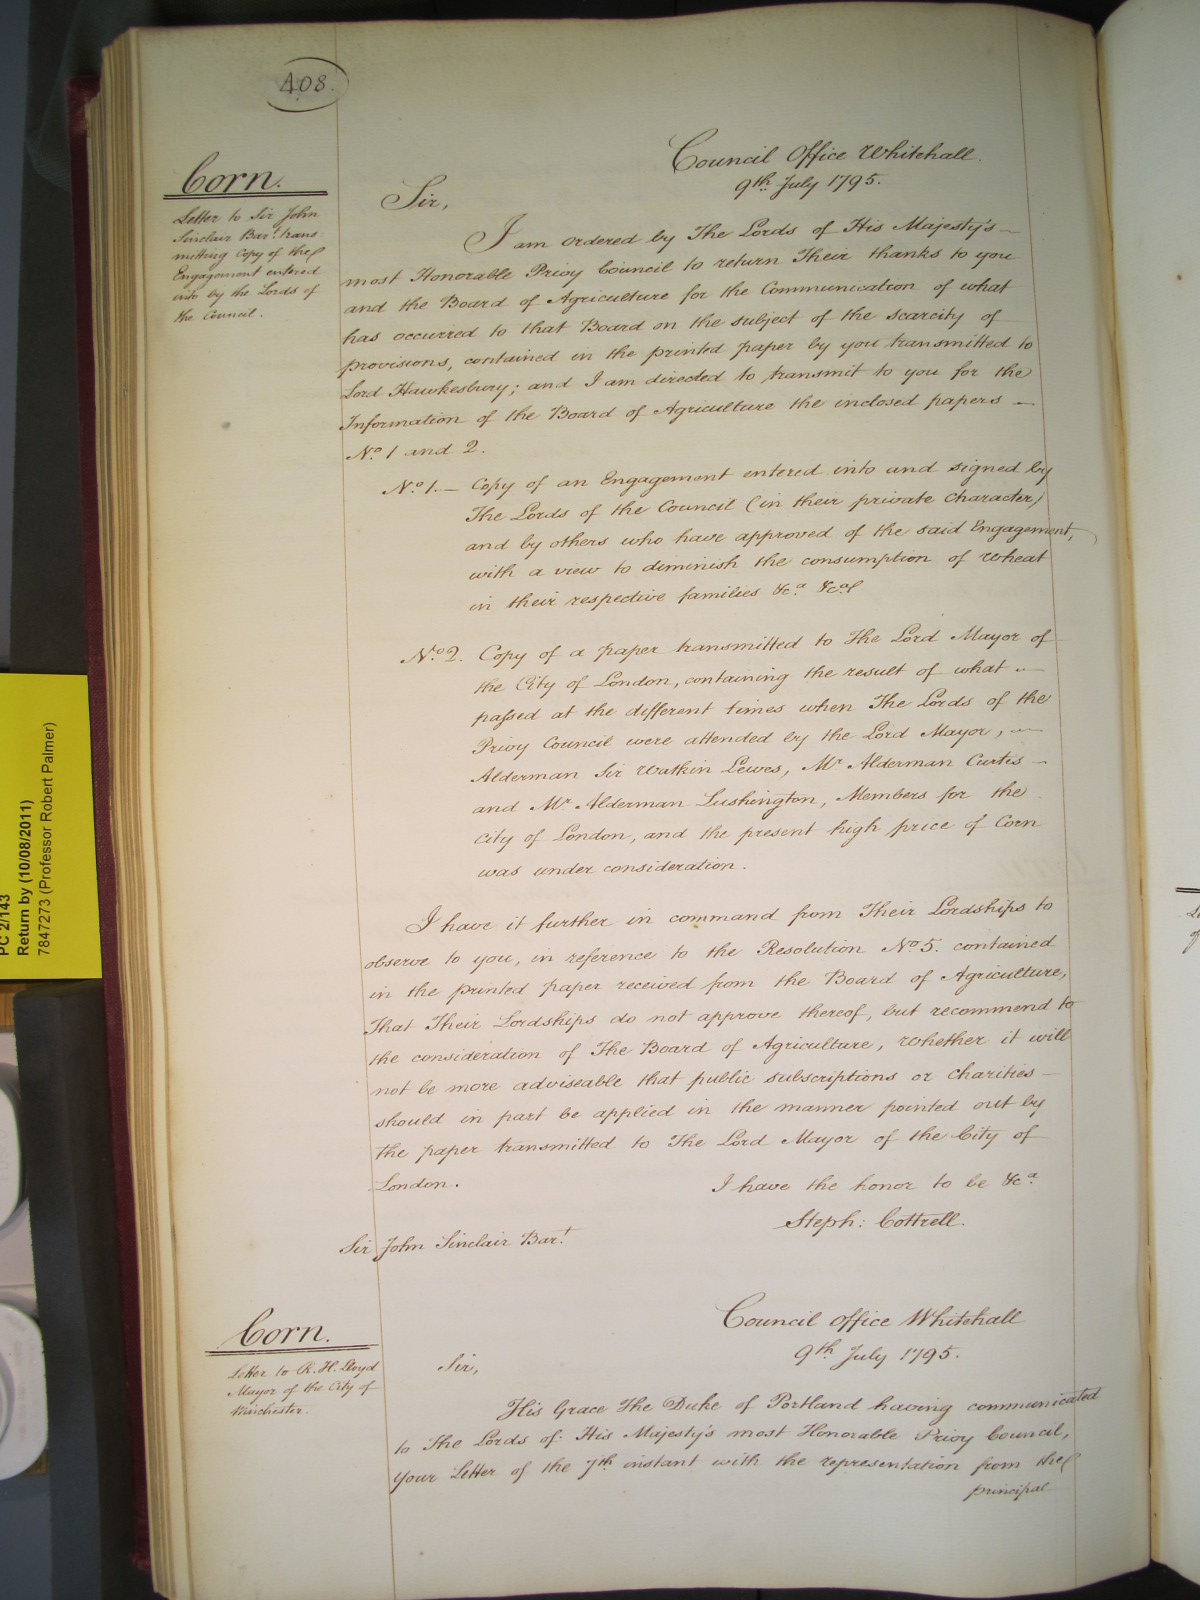 408.
Corn.
Letter to Sir John
Sinclair Bar.t trans-
mitting Copy of the
Engagement entered
into by the Lords of
the Council.
Council Office Whitehall.
9th. July 1795.
Sir,
I am ordered by The Lords of His Majesty's —
most Honorable Privy Council to return Their thanks to you
and the Board of Agriculture for the Communication of what
has occurred to that Board on the subject of the scarcity of
provisions, contained in the printed paper by you transmitted to
Lord Hawkesbury; and I am directed to transmit to you for the
Information of the Board of Agriculture the inclosed papers —
No. 1 and 2.
No. 1. — Copy of an Engagement entered into and signed by
The Lords of the Council (in their private Character)
and by others who have approved of the said Engagement,
with a view to diminish the consumption of Wheat
in their respective families &c.a &c.a
No. 2. Copy of a paper transmitted to The Lord Mayor of
the City of London, containing the result of what —
passed at the different times when The Lords of the
Privy Council were attended by the Lord Mayor, —
Alderman Sir Watkin Lewes, Mr Alderman Curtis —
and Mr Alderman Lushington, Members for the
City of London, and the present high price of Corn
was under consideration.
I have it further in command from Their Lordships to
observe to you, in reference to the Resolution No. 5. contained
in the printed paper received from the Board of Agriculture,
That Their Lordships do not approve thereof, but recommend to
the consideration of The Board of Agriculture, Whether it will
not be more adviseable that public subscriptions or charities —
should in part be applied in the manner pointed out by
the paper transmitted to The Lord Mayor of the City of
London.
I have the honor to be &c.a
Steph: Cottrell.
Sir John Sinclair Bar.t
Corn.
Letter to R. H. Lloyd
Mayor of the City of
Winchester.
Council Office Whitehall
9th. July 1795.
Sir,
His Grace The Duke of Portland having communicated
to The Lords of His Majesty's most Honorable Privy Council,
Your Letter of the 7th instant with the representation from the
principal
PC 2/143
Return by (10/08/2011)
7847273 (Professor Robert Palmer)